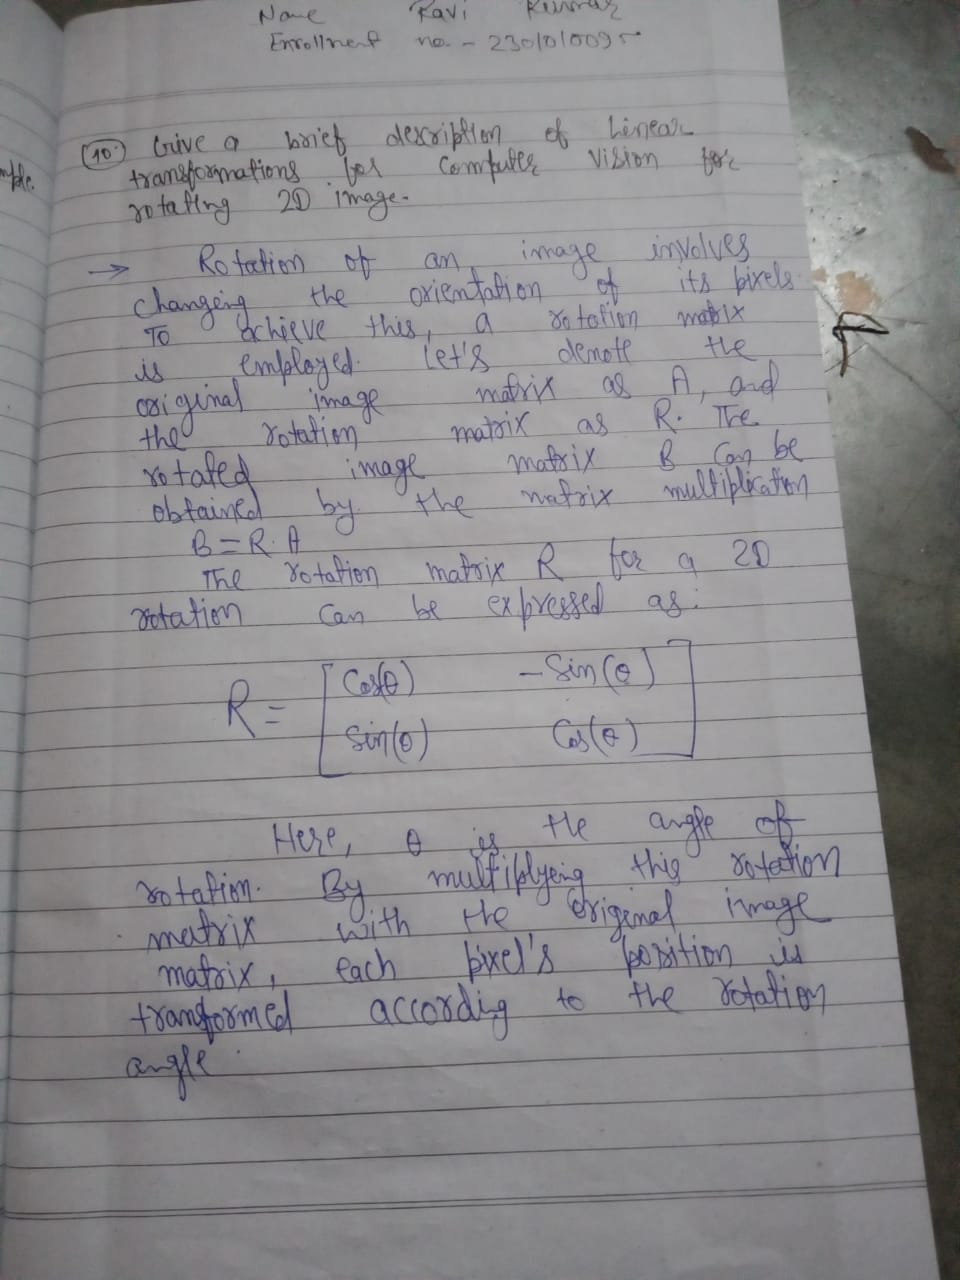 Name Ravi Kumar
Enrollment no. - 2301010095
10. Give a brief description of Linear
transformations for Computer Vision for
rotating 2D image.
mple.
→ Rotation of an image involves
changeing the orientation of its pixels.
To achieve this, a rotation matrix
is employed. Let's denote the
original image matrix as A, and
the rotation matrix as R. The
rotated image matrix B can be
obtained by the matrix multiplication
B = R. A
The rotation matrix R for a 2D
rotation can be expressed as:
R = [ Cos(θ) - Sin(θ)
Sin(θ) Cos(θ) ]
Here, θ is the angle of
rotation. By multiplyeing this rotation
matrix with the original image
matrix, each pixel's position is
transformed according to the rotation
angle.